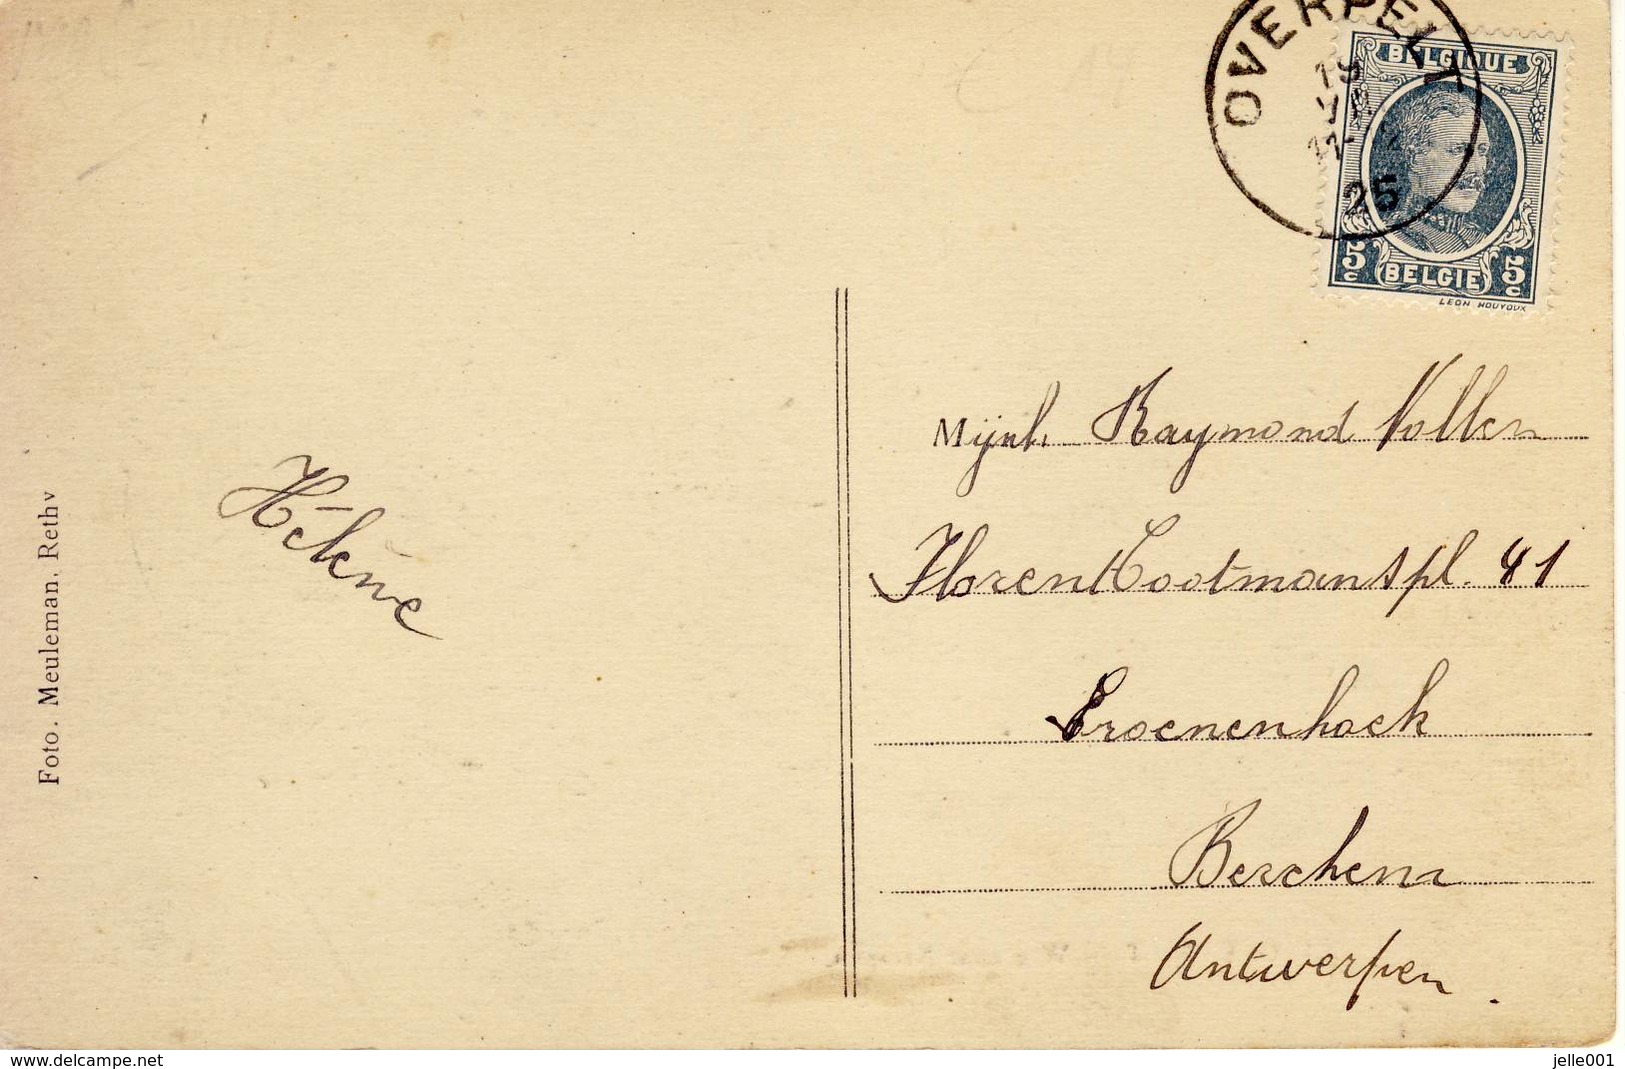 OVERPELT
25
BELGIQUE
5c BELGIE 5c
LEON HOUYOUX
Mijnh. Raymond Nollen
Florent Cootmanspl. 41
Groenenhoek
Berchem
Antwerpen.
Hélène
Foto. Meuleman. Rethy
www.delcampe.net
jelle001